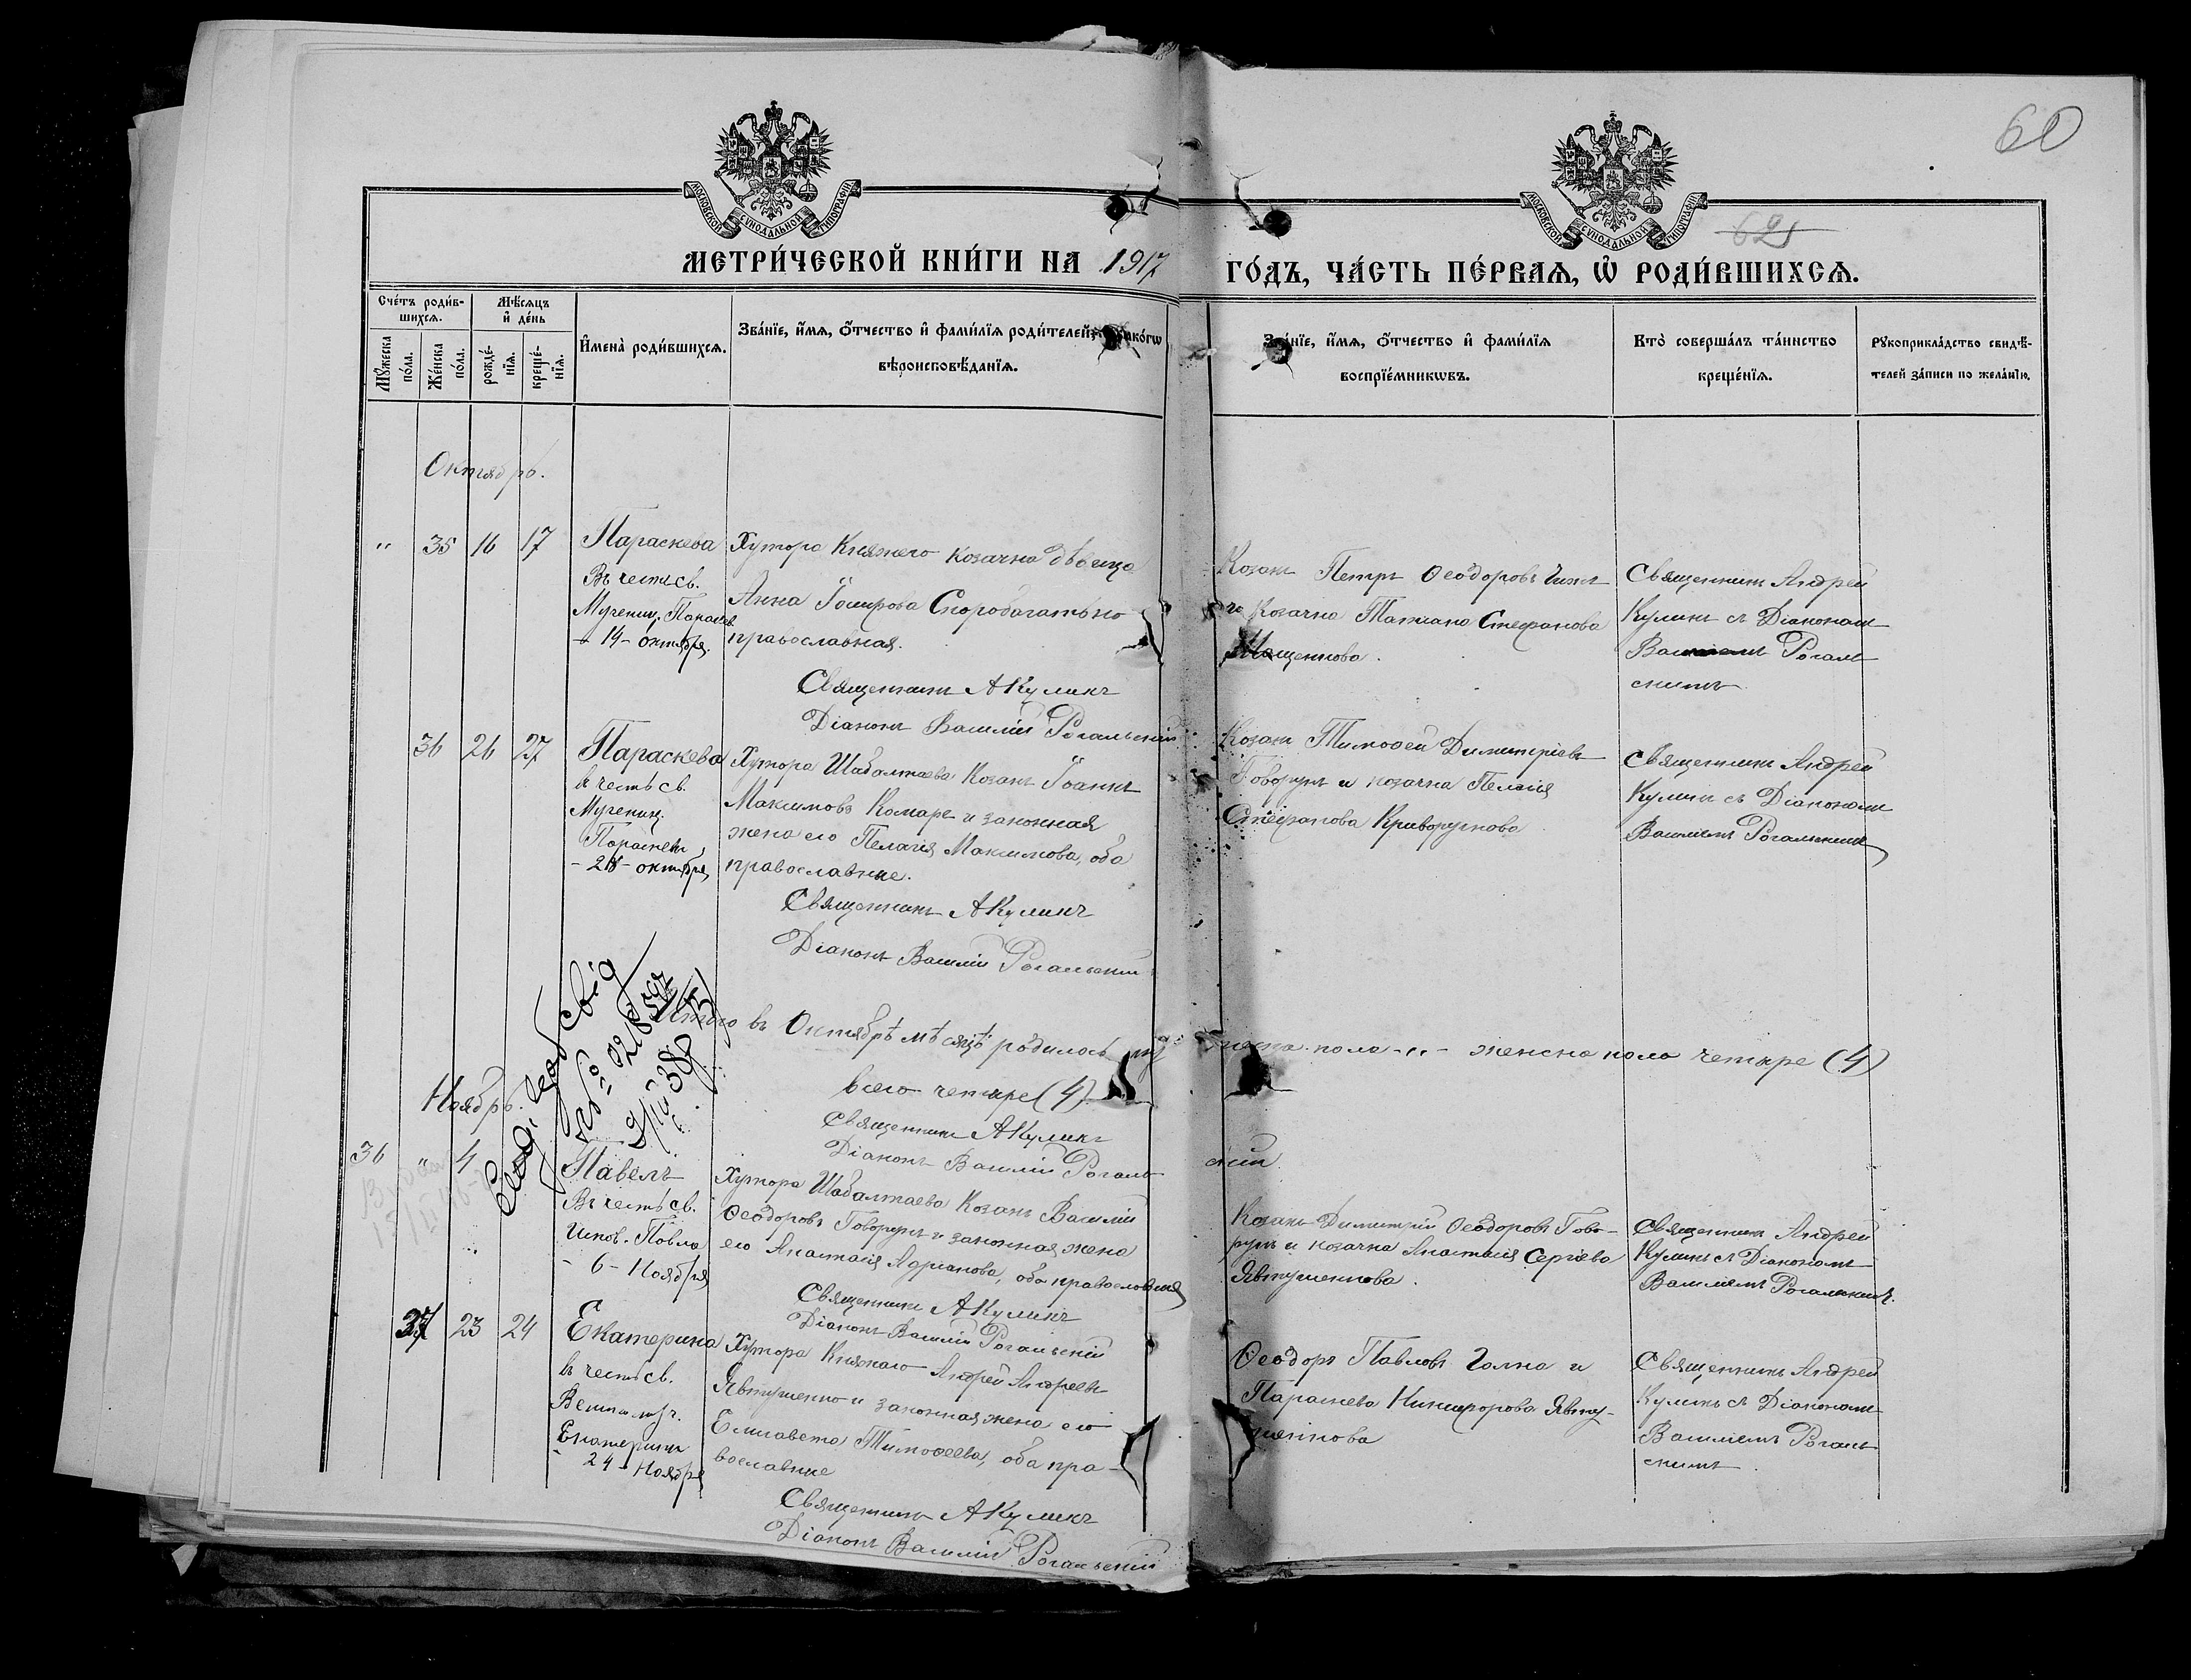 60
МОСКОВСКОЙ СѴНОДАЛЬНОЙ ТИПОГРАФІИ
МОСКОВСКОЙ СѴНОДАЛЬНОЙ ТИПОГРАФІИ
625
МЕТРИ́ЧЕСКОЙ КНИ́ГИ НА 1917 ГО́ДЪ, ЧА́СТЬ ПЕ́РВАѦ, Ѡ РОДИ́ВШИХСѦ.
Сче́тъ роди́в-
шихсѧ.
Мѣ́сѧцъ
и҆ де́нь
Мꙋ́жеска по́ла.
Же́нска по́ла.
рожде́-
нїѧ.
креще́-
нїѧ.
И҆мена̀ роди́вшихсѧ.
Зва́нїе, и҆́мѧ, о҆́тчество и҆ фами́лїѧ роди́телей, и҆ како́гѡ
вѣроисповѣ́данїѧ.
Зва́нїе, и҆́мѧ, о҆́тчество и҆ фами́лїѧ
воспрїе́мникѡвъ.
Кто̀ соверша́лъ та́инство
креще́нїѧ.
Рꙋкоприкла́дство свидѣ́-
телей за́писи по жела́нїю.
Октябрь.
" 35 16 17
Параскева
Въ честь св.
Мучениц. Параскев.
- 14 - октября.
Хутора Княжего козачка дѣвица
Анна Іосифова Скоробагатько
православная.
Священникъ А Куликъ
Діаконъ Василій Рогальскій
Козакъ Петръ Ѳеодоровъ
и козачка Татіана Стефанова
Мащенкова.
Священникъ Андрей
Куликъ съ Діакономъ
Василіемъ Рогаль-
скимъ
36 26 27
Параскева
въ честь св.
Мучениц.
Параскев
- 28 - октября,
Хутора Шабалтаева Козакъ Іоаннъ
Максимовъ Комаръ и законная
жена его Пелагія Максимова, оба
православные.
Священникъ А Куликъ
Діаконъ Василій Рогальскій
Козакъ Тимоѳей Димитріевъ
Говорунъ и козачка Пелагія
Стефанова Криворучкова
Священникъ Андрей
Куликъ съ Діакономъ
Василіемъ Рогальскимъ
Итого въ Октябрѣ мѣсяцѣ родилось мужеска пола - " - женска пола четыре (4)
всего четыре (4)
Священникъ А Куликъ
Діаконъ Василій Рогальскій
Ноябрь.
36 " 4
Павелъ
Въ честь св.
Испов. Павла
- 6 - Ноября
Хутора Шабалтаева Козакъ Василій
Ѳеодоровъ Говорунъ и законная жена
его Анастасія Адріанова, оба православныя
Священникъ А Куликъ
Діаконъ Василій Рогальскій
Козакъ Димитрій Ѳеодоровъ Гово-
рунъ и козачка Анастасія Сергіева
Явтушенкова.
Священникъ Андрей
Куликъ съ Діакономъ
Василіемъ Рогальскимъ.
37 23 24
Екатерина
въ честь св.
Великомуч.
Екатерины
- 24 - Ноября
Хутора Княжаго Андрей Андреевъ
Явтушенко и законная жена его
Елисавета Тимоѳеева, оба пра-
вославные
Священникъ А Куликъ
Діаконъ Василій Рогальскій
Ѳеодоръ Павловъ Галка и
Параскева Никифорова Явту-
шенкова
Священникъ Андрей
Куликъ съ Діакономъ
Василіемъ Рогаль-
скимъ